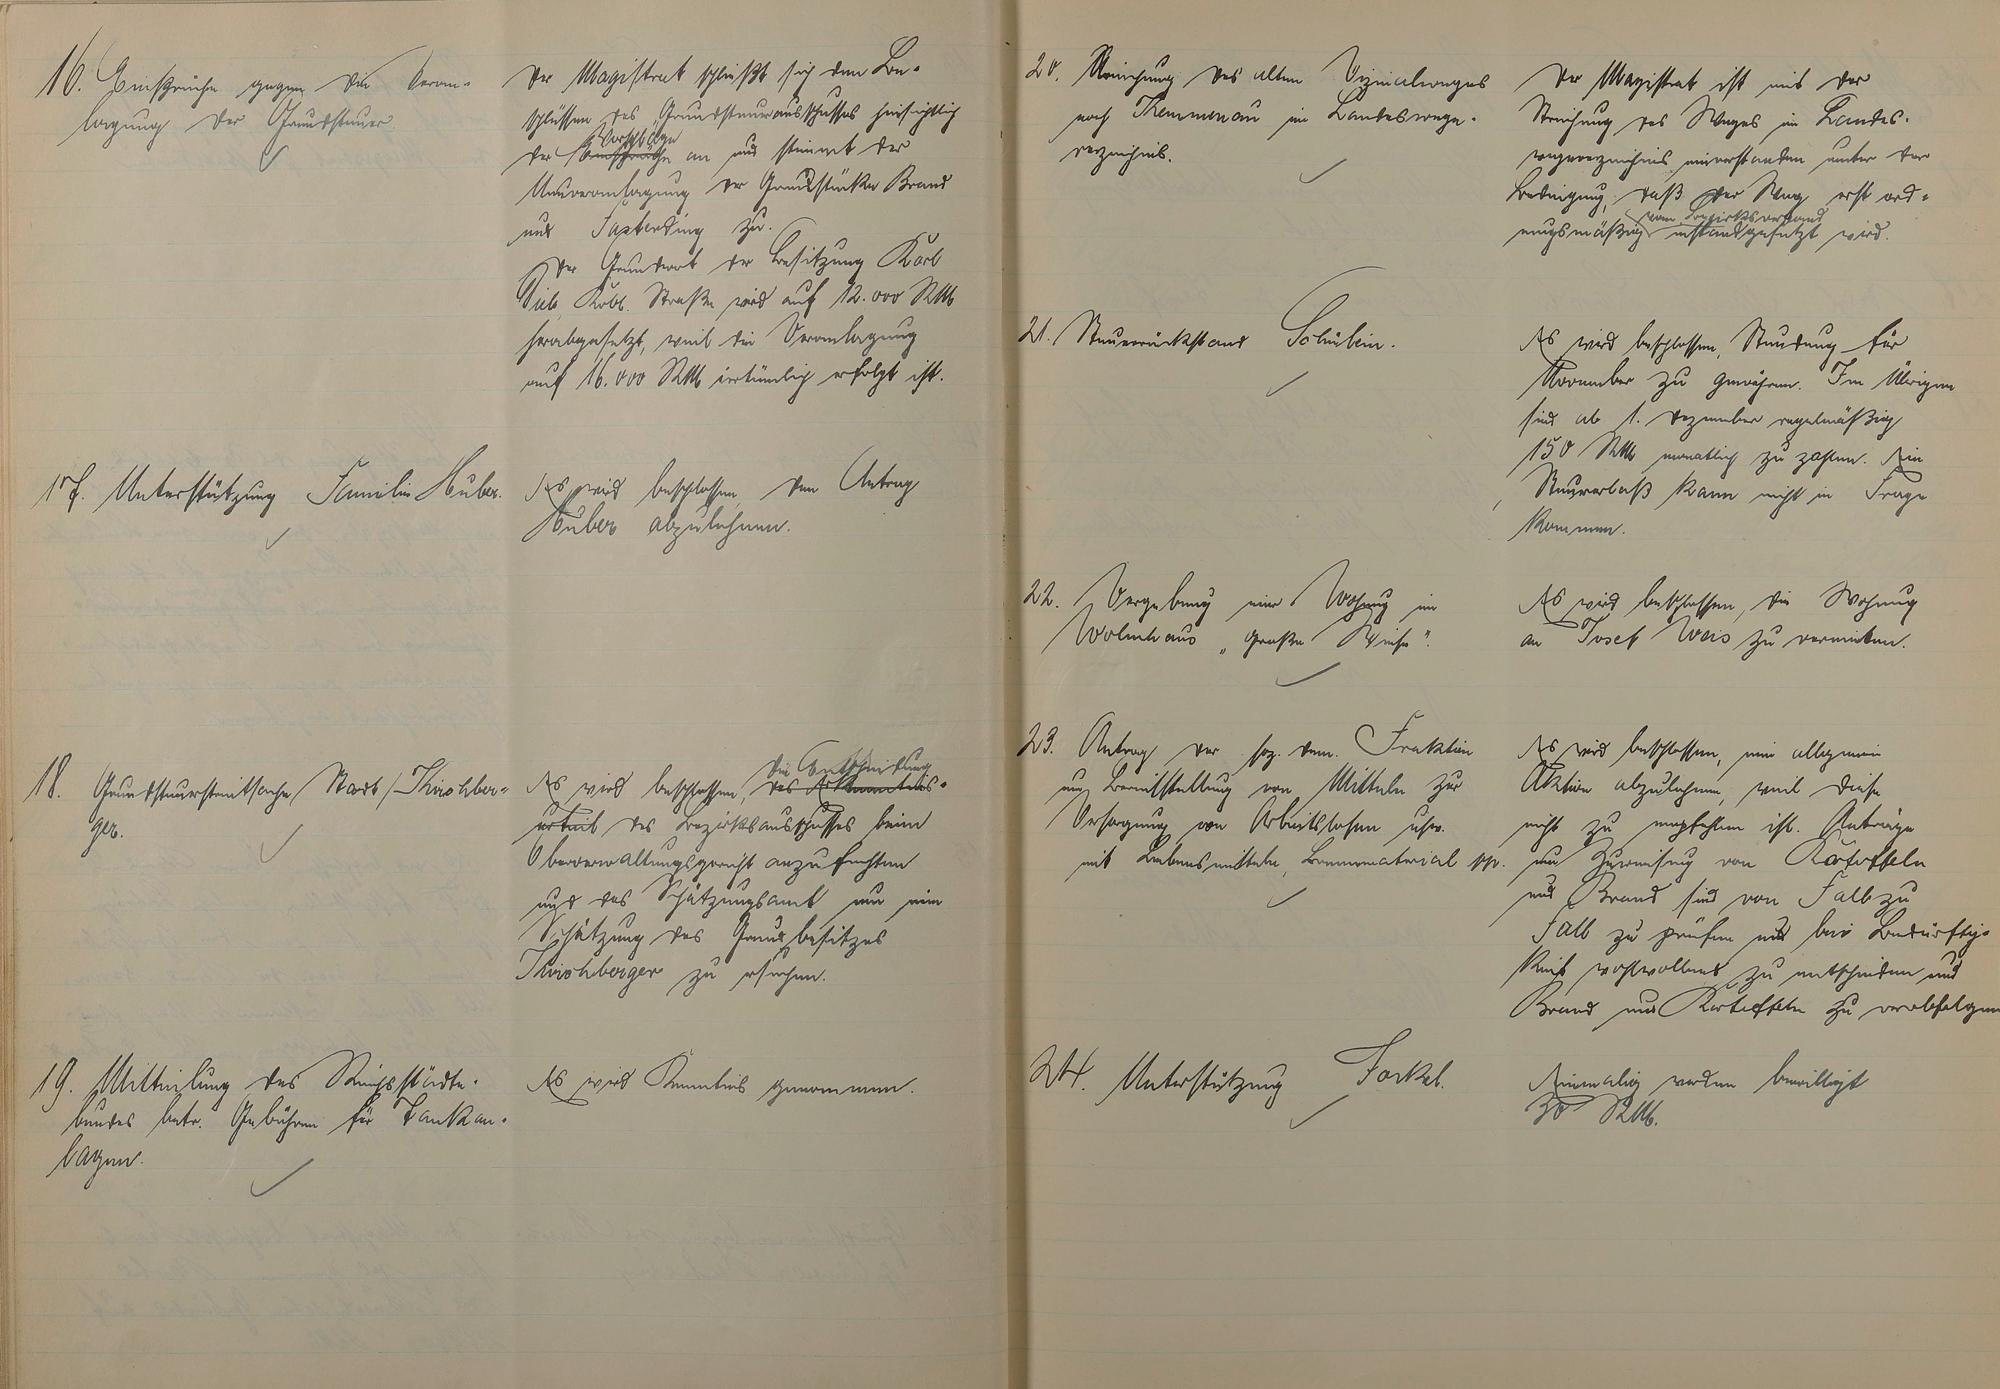 16. Einsprüche gegen die Veran-
lagung der Grundsteuer
Der Magistrat schließt sich den Be-
schlüssen des Grundsteuerausschusses hinsichtlich
Vorschläge
der Einsprüche an und stimmt der
Neuveranlagung der Grundstücke Brand
und zu.
Der Grundwert der Besitzung Karl
Straße wird auf 12.000 RM
herabgesetzt, weil die Veranlagung
auf 16.000 RM irrtümlich erfolgt ist.
17. Unterstützung Familie Huber.
Es wird beschlossen, den Antrag
Huber abzulehnen.
18. Grundsteuerstreitsache Stadt / Kirschber-
ger.
die Entscheidung
Es wird beschlossen, des Erkenntnis-
urteil des Bezirksausschusses beim
Oberverwaltungsgericht anzufechten
und das Schätzungsamt um eine
Schätzung des Grundbesitzes
Kirschberger zu ersuchen.
19. Mitteilung des Reichsstädte-
bundes betr. Gebühren für Tankan-
lagen.
Es wird Kenntnis genommen.
20. Streichung des alten Vizinalweges
nach Kemmenau im Landeswege-
verzeichnis.
Der Magistrat ist mit der
Streichung des Weges im Landes-
wegeverzeichnis einverstanden unter der
Bedingung, daß der Weg erst ord-
vom Bezirksverband
nungsmäßig instandgesetzt wird.
21. Steuerrückstand Schüblein.
Es wird beschlossen, Stundung für
November zu gewähren. Im Übrigen
sind ab 1. Dezember regelmäßig
150 RM monatlich zu zahlen. Ein
Steuererlaß kann nicht in Frage
kommen.
22. Vergebung einer Wohnung im
Wohnhaus „große Wiese".
Es wird beschlossen, die Wohnung
an Josef Weis zu vermieten.
23. Antrag der soz. dem. Fraktion
um Bereitstellung von Mitteln zur
Versorgung von Arbeitslosen usw.
mit Lebensmitteln, Brennmaterial pp.
Es wird beschlossen, eine allgemeine
Aktion abzulehnen, weil diese
nicht zu empfehlen ist. Anträge
um Zuweisung von Kartoffeln
und Brand sind von Fall zu
Fall zu prüfen und bei Bedürftig-
keit wohlwollend zu entscheiden und
Brand und Kartoffeln zu verabfolgen
24. Unterstützung Forkel.
Einmalig werden bewilligt
30 RM.